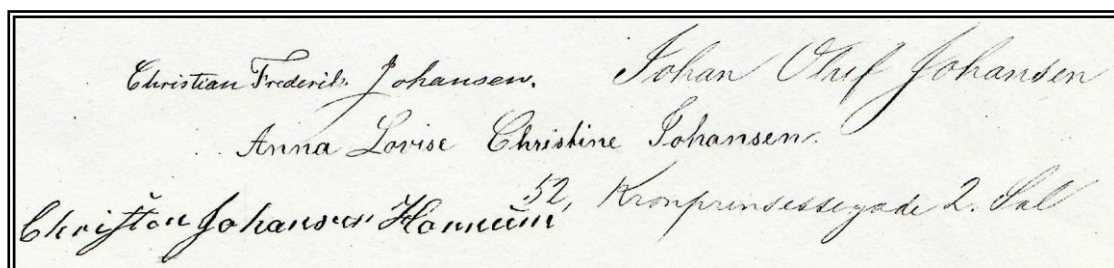 Christian Frederik Johansen. Johan Oluf Johansen
Anna Lovise Christine Johansen.
Christian Johansen Hornum 52, Kronprinsessegade 2. Sal